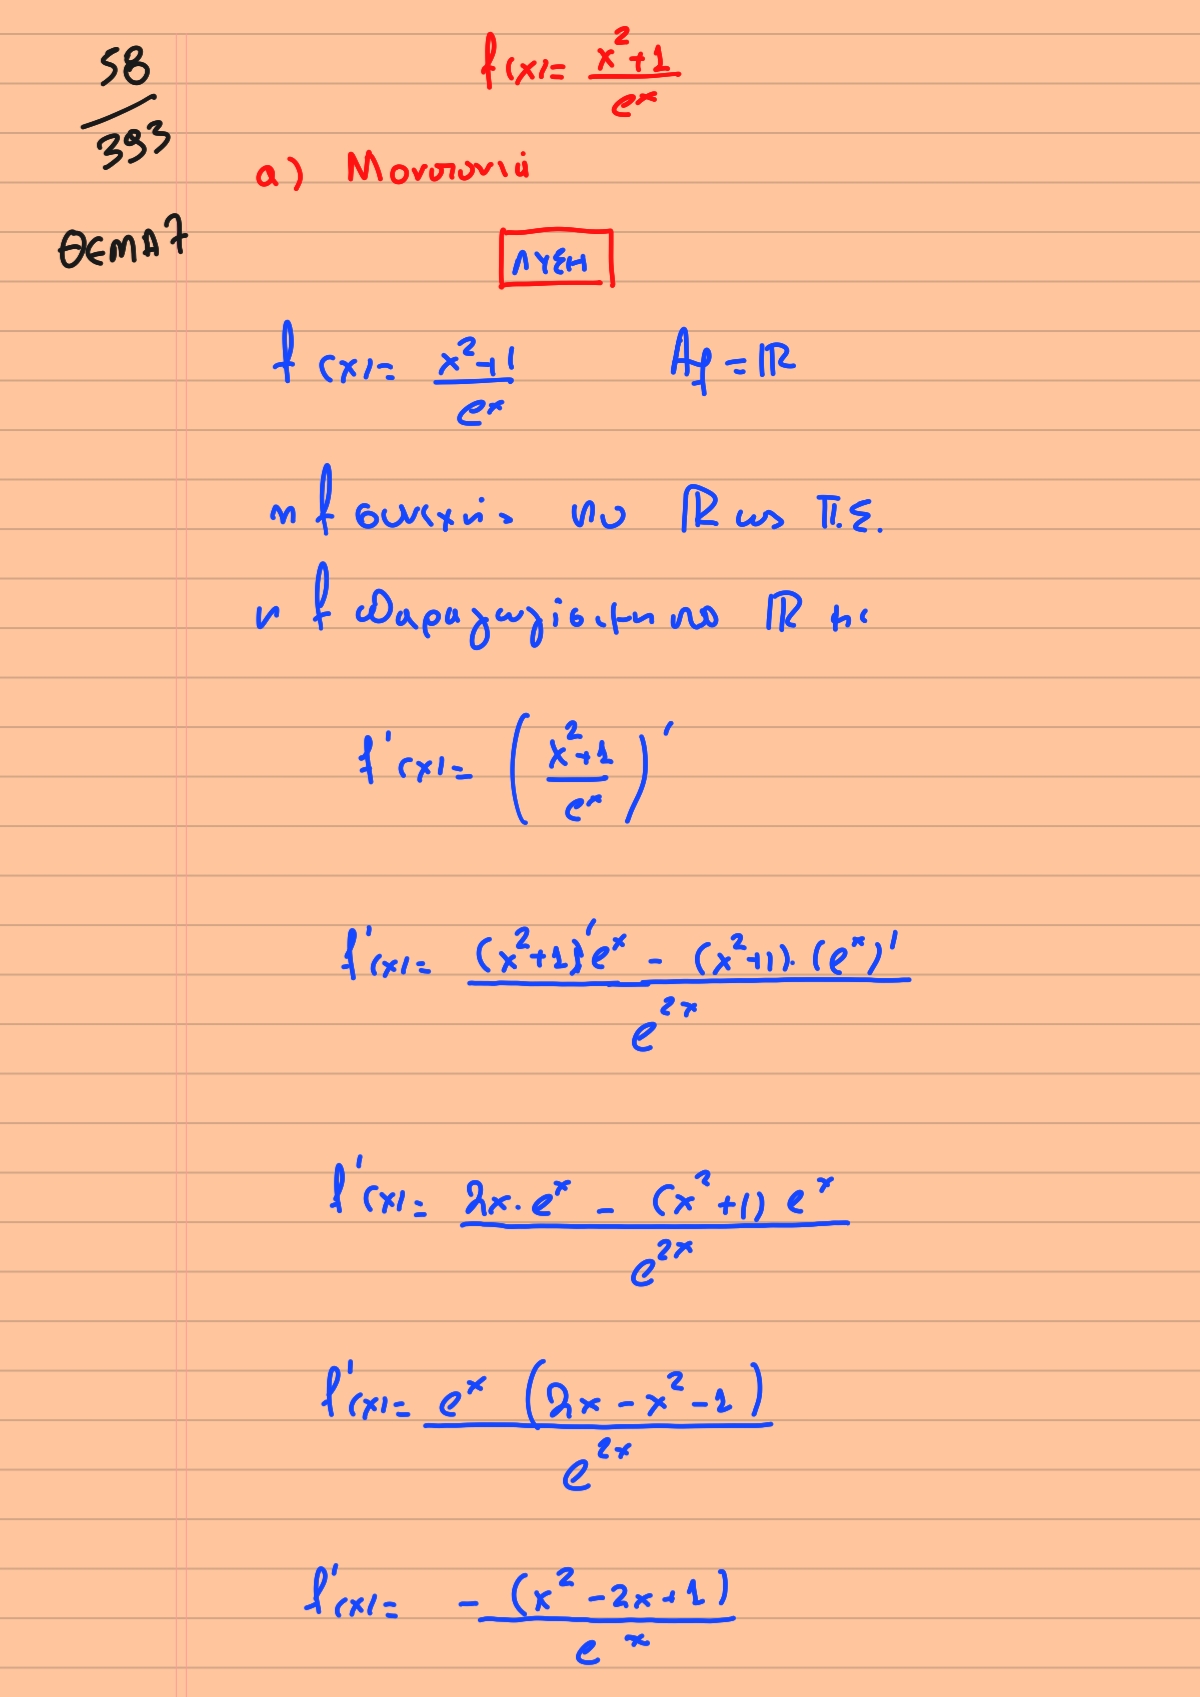 58/393
f(x)= (x²+1)/eˣ
α) Μονοτονία
ΘΕΜΑ 7
ΛΥΣΗ
f(x)= (x²+1)/eˣ   A_f = ℝ
η f συνεχής στο ℝ ως Π.Σ.
η f παραγωγίσιμη στο ℝ με
f'(x)= ((x²+1)/eˣ)'
f'(x)= ((x²+1)'eˣ - (x²+1)·(eˣ)')/e²ˣ
f'(x)= (2x·eˣ - (x²+1) eˣ)/e²ˣ
f'(x)= eˣ (2x - x² - 1)/e²ˣ
f'(x)= -(x² - 2x + 1)/eˣ